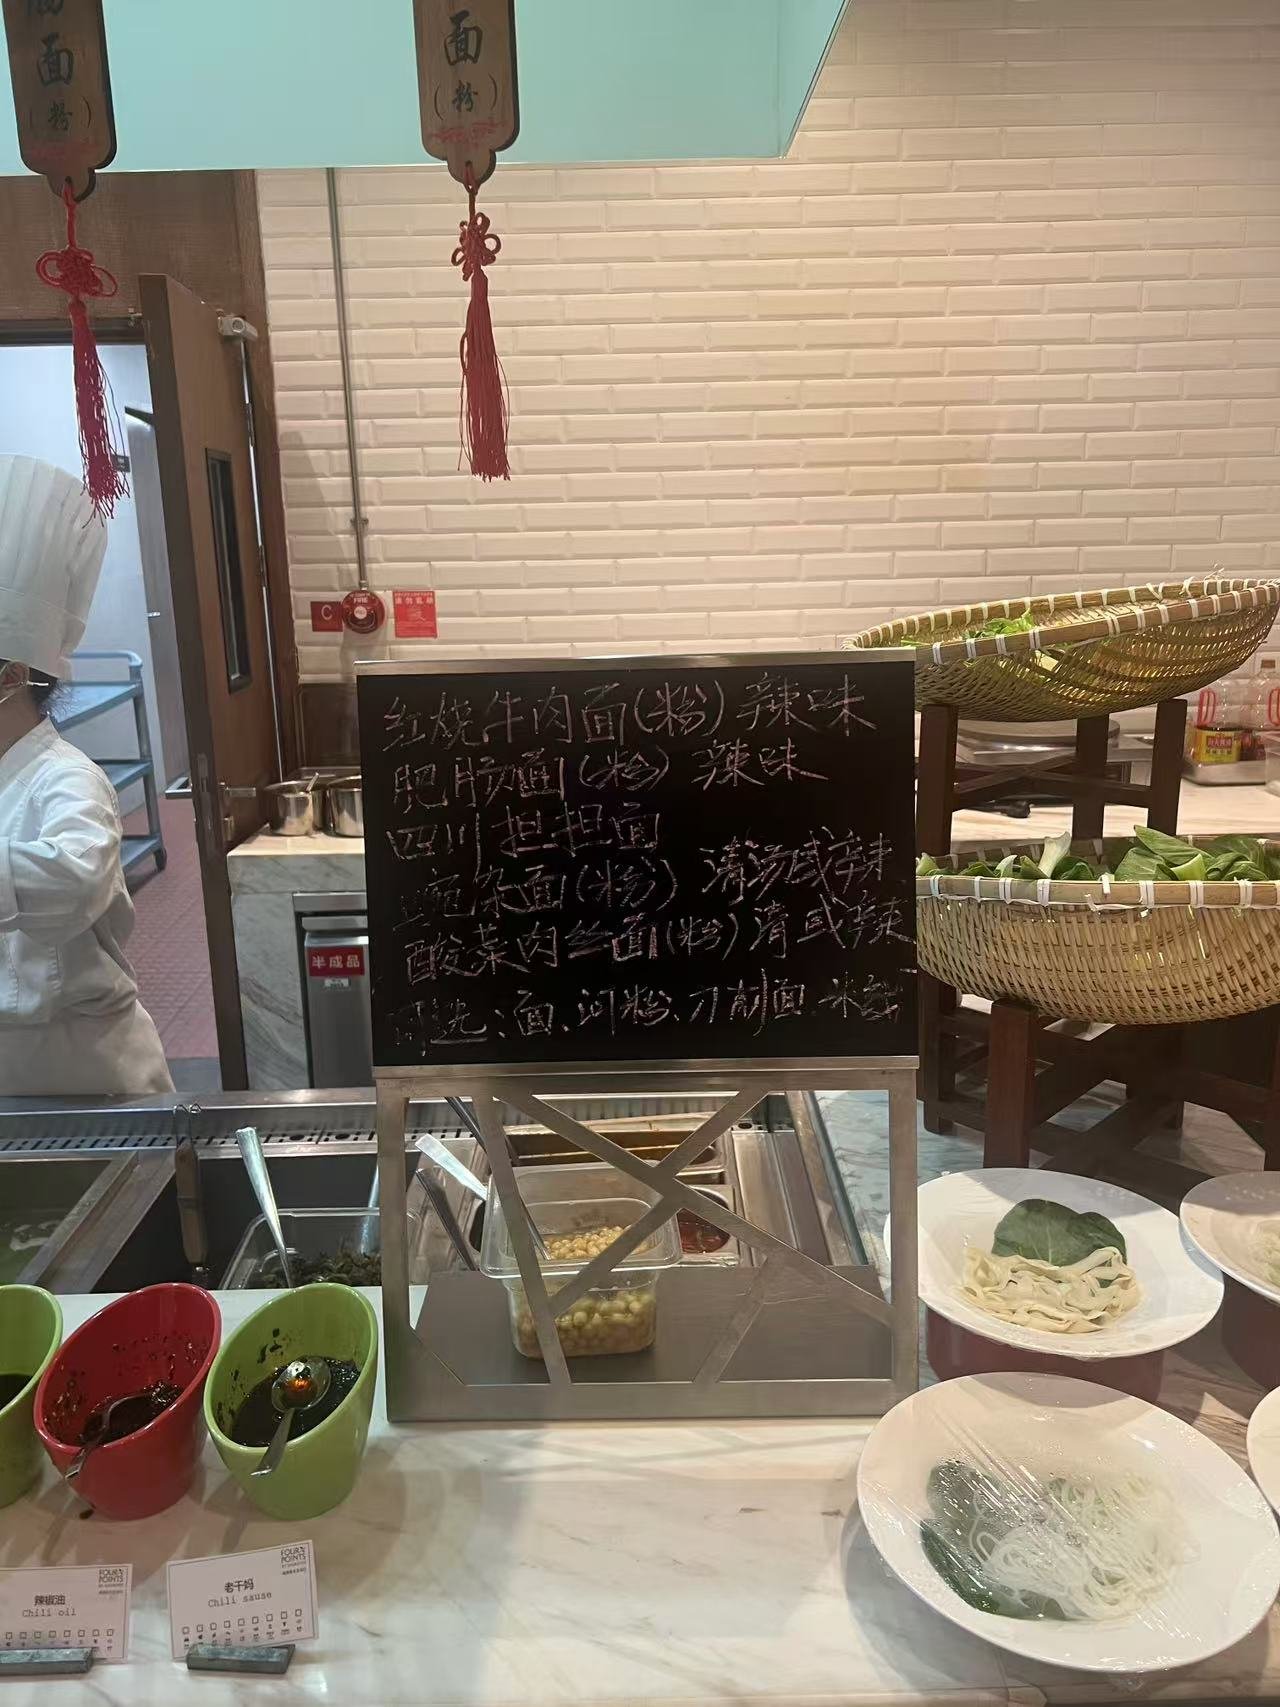 面
(粉)
面
(粉)
C
FIRE
红烧牛肉面(粉) 辣味
肥肠面(粉) 辣味
四川担担面
豌杂面(粉) 清汤或辣
酸菜肉丝面(粉) 清或辣
可选:面、河粉、刀削面、米线
半成品
FOUR POINTS
辣椒油
Chili oil
FOUR POINTS
老干妈
Chili sause